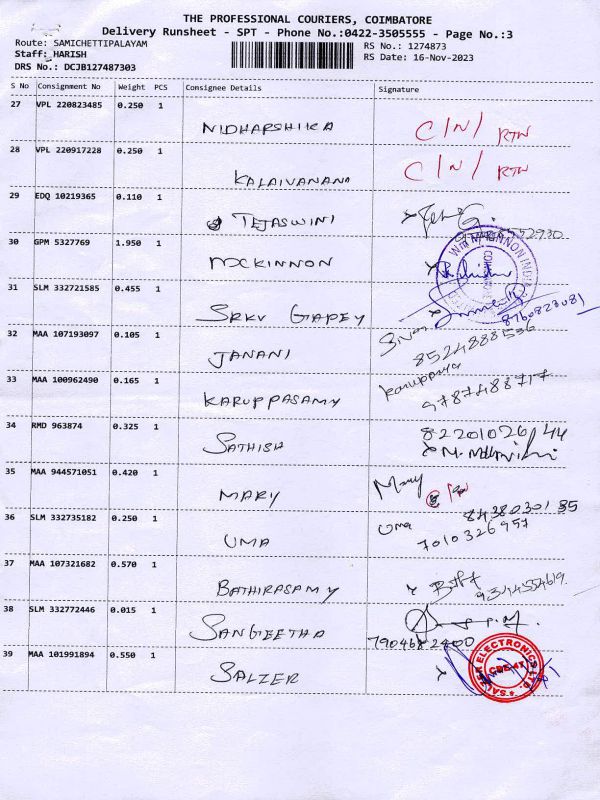 THE PROFESSIONAL COURIERS, COIMBATORE
Delivery Runsheet - SPT - Phone No.:0422-3505555 - Page No.:3
Route: SAMICHETTIPALAYAM RS No.: 1274873
Staff: HARISH RS Date: 16-Nov-2023
DRS No.: DCJB127487303
S No Consignment No Weight PCS Consignee Details Signature
27 VPL 220823485 0.250 1 NIDHARSHIKA C/N/ RTN
28 VPL 220917228 0.250 1 KALAIVANANA C/N/ RTN
29 EDQ 10219365 0.110 1 TEJASWINI
30 GPM 5327769 1.950 1 MCKINNON
31 SLM 332721585 0.455 1 SRKV GAPEY 8760823081
32 MAA 107193097 0.105 1 JANANI 8524888536
33 MAA 100962490 0.165 1 KARUPPASAMY Karuppaya 9787488717
34 RMD 963874 0.325 1 SATHISH 8220102644
35 MAA 944571051 0.420 1 MARY Mary 8438030135
36 SLM 332735182 0.250 1 UMA Uma 7010326957
37 MAA 107321682 0.570 1 BATHIRASAMY 9344554619
38 SLM 332772446 0.015 1 SANGEETHA 7904682400
39 MAA 101991894 0.550 1 SALZER SALZER ELECTRONICS LTD. CBE-47